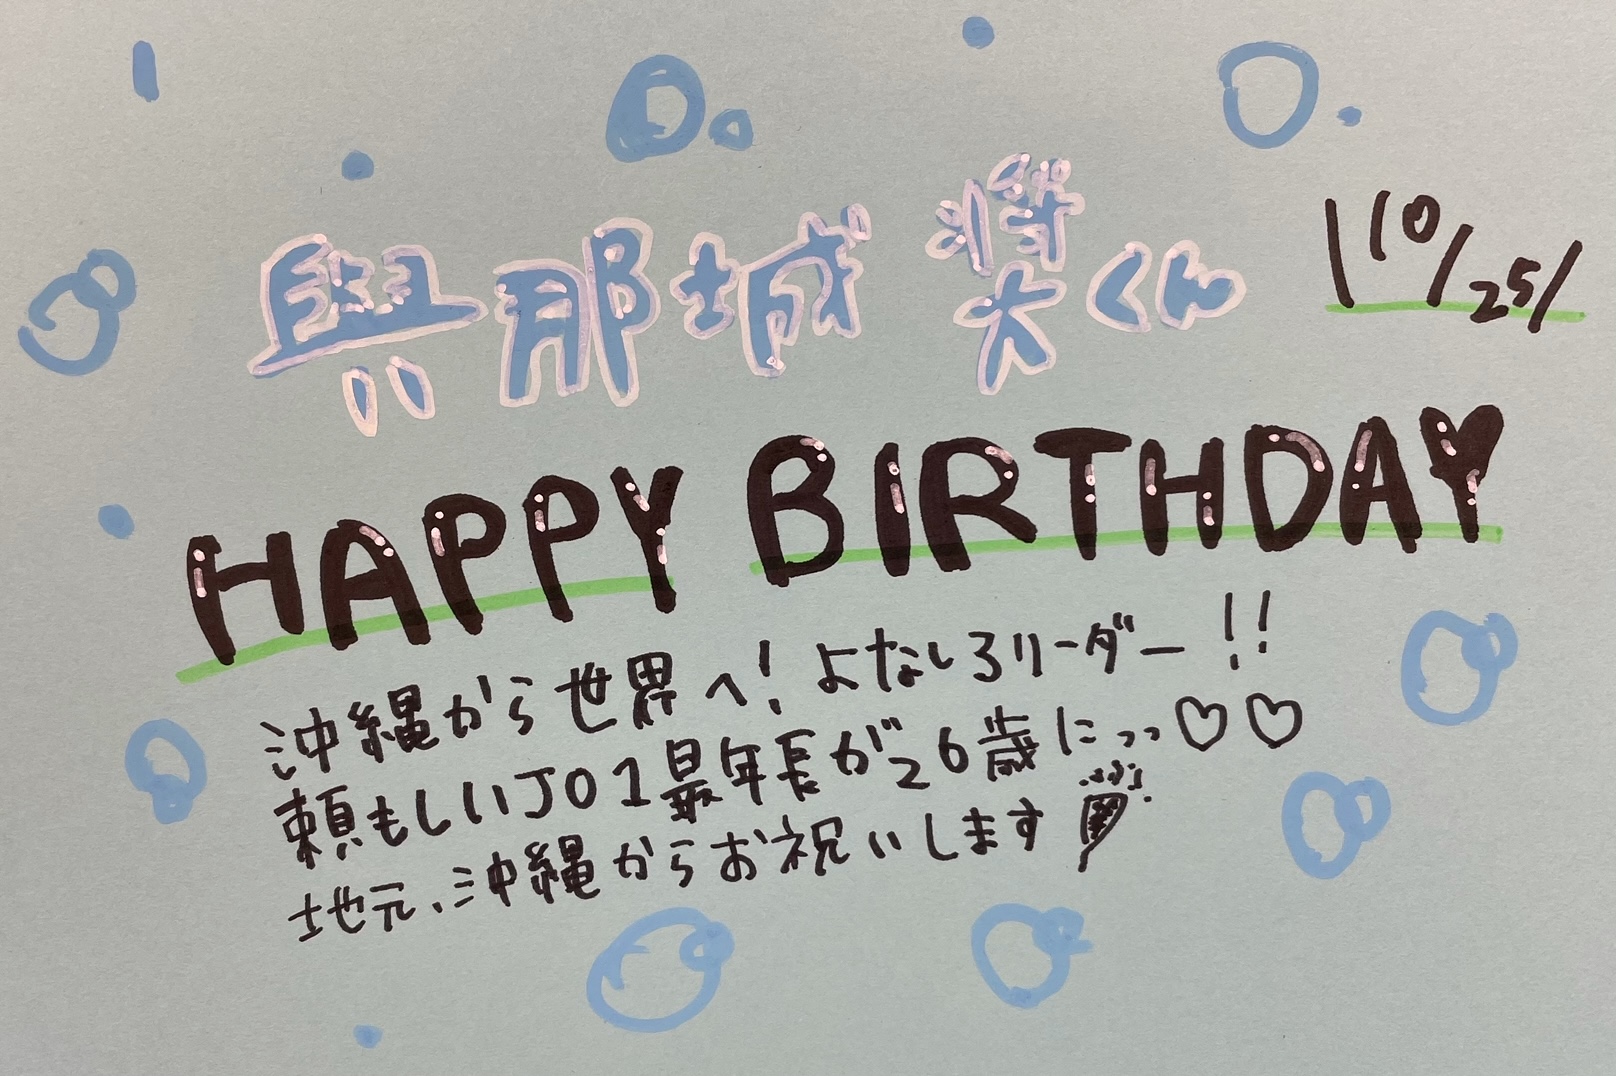 與那城 奨くん
\10/25/
HAPPY BIRTHDAY
沖縄から世界へ！よなしろリーダー!!
頼もしいJO1最年長が26歳にっっ♡♡
地元、沖縄からお祝いします